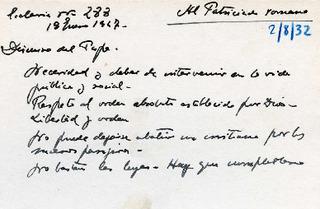 Ecclesia nº 288
18 Enero 1947.-
Al Patriciado romano
2/8/32
Discurso del Papa.
Necesidad y deber de intervenir en la vida
pública y social -
Respeto al orden absoluto establecido por Dios -
Libertad y orden
No puede dejarse abatir un cristiano por los
sucesos pasajeros -
No bastan las leyes - Hay que cumplirlas